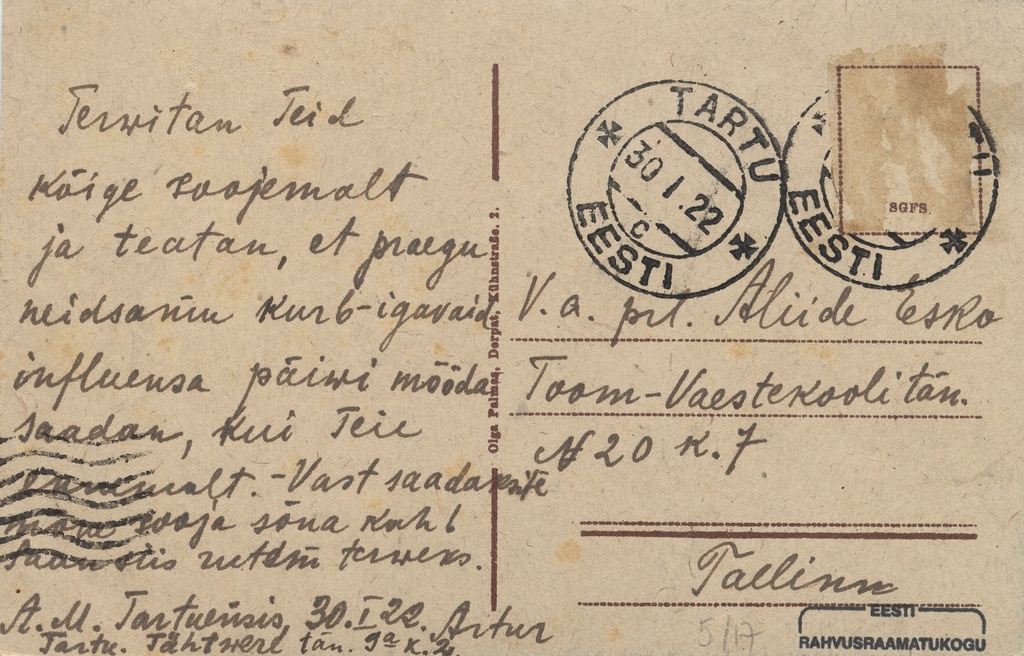 Terwitan Teid
kõige soojemalt
ja teatan, et praegu
neidsamu kurb-igavaid
influensa päiwi mööda
saadan, kui Teie
ennemalt. - Vast saadaksite
mõne sooja sõna kah!
Saan siis ruttem terweks.
A. M. Tartuensis, 30.I 22. Artur
Tartu. Tähtwere tän. 9a k. 2.
Olga Palmas, Dorpat, Kühnstraße. 2.
TARTU
30 I. 22
C
EESTI
EESTI
SGFS
V. a. prl. Aliide Esko
Toom-Vaestekooli tän.
№ 20 k. 7
Tallinn
5/17
EESTI
RAHVUSRAAMATUKOGU